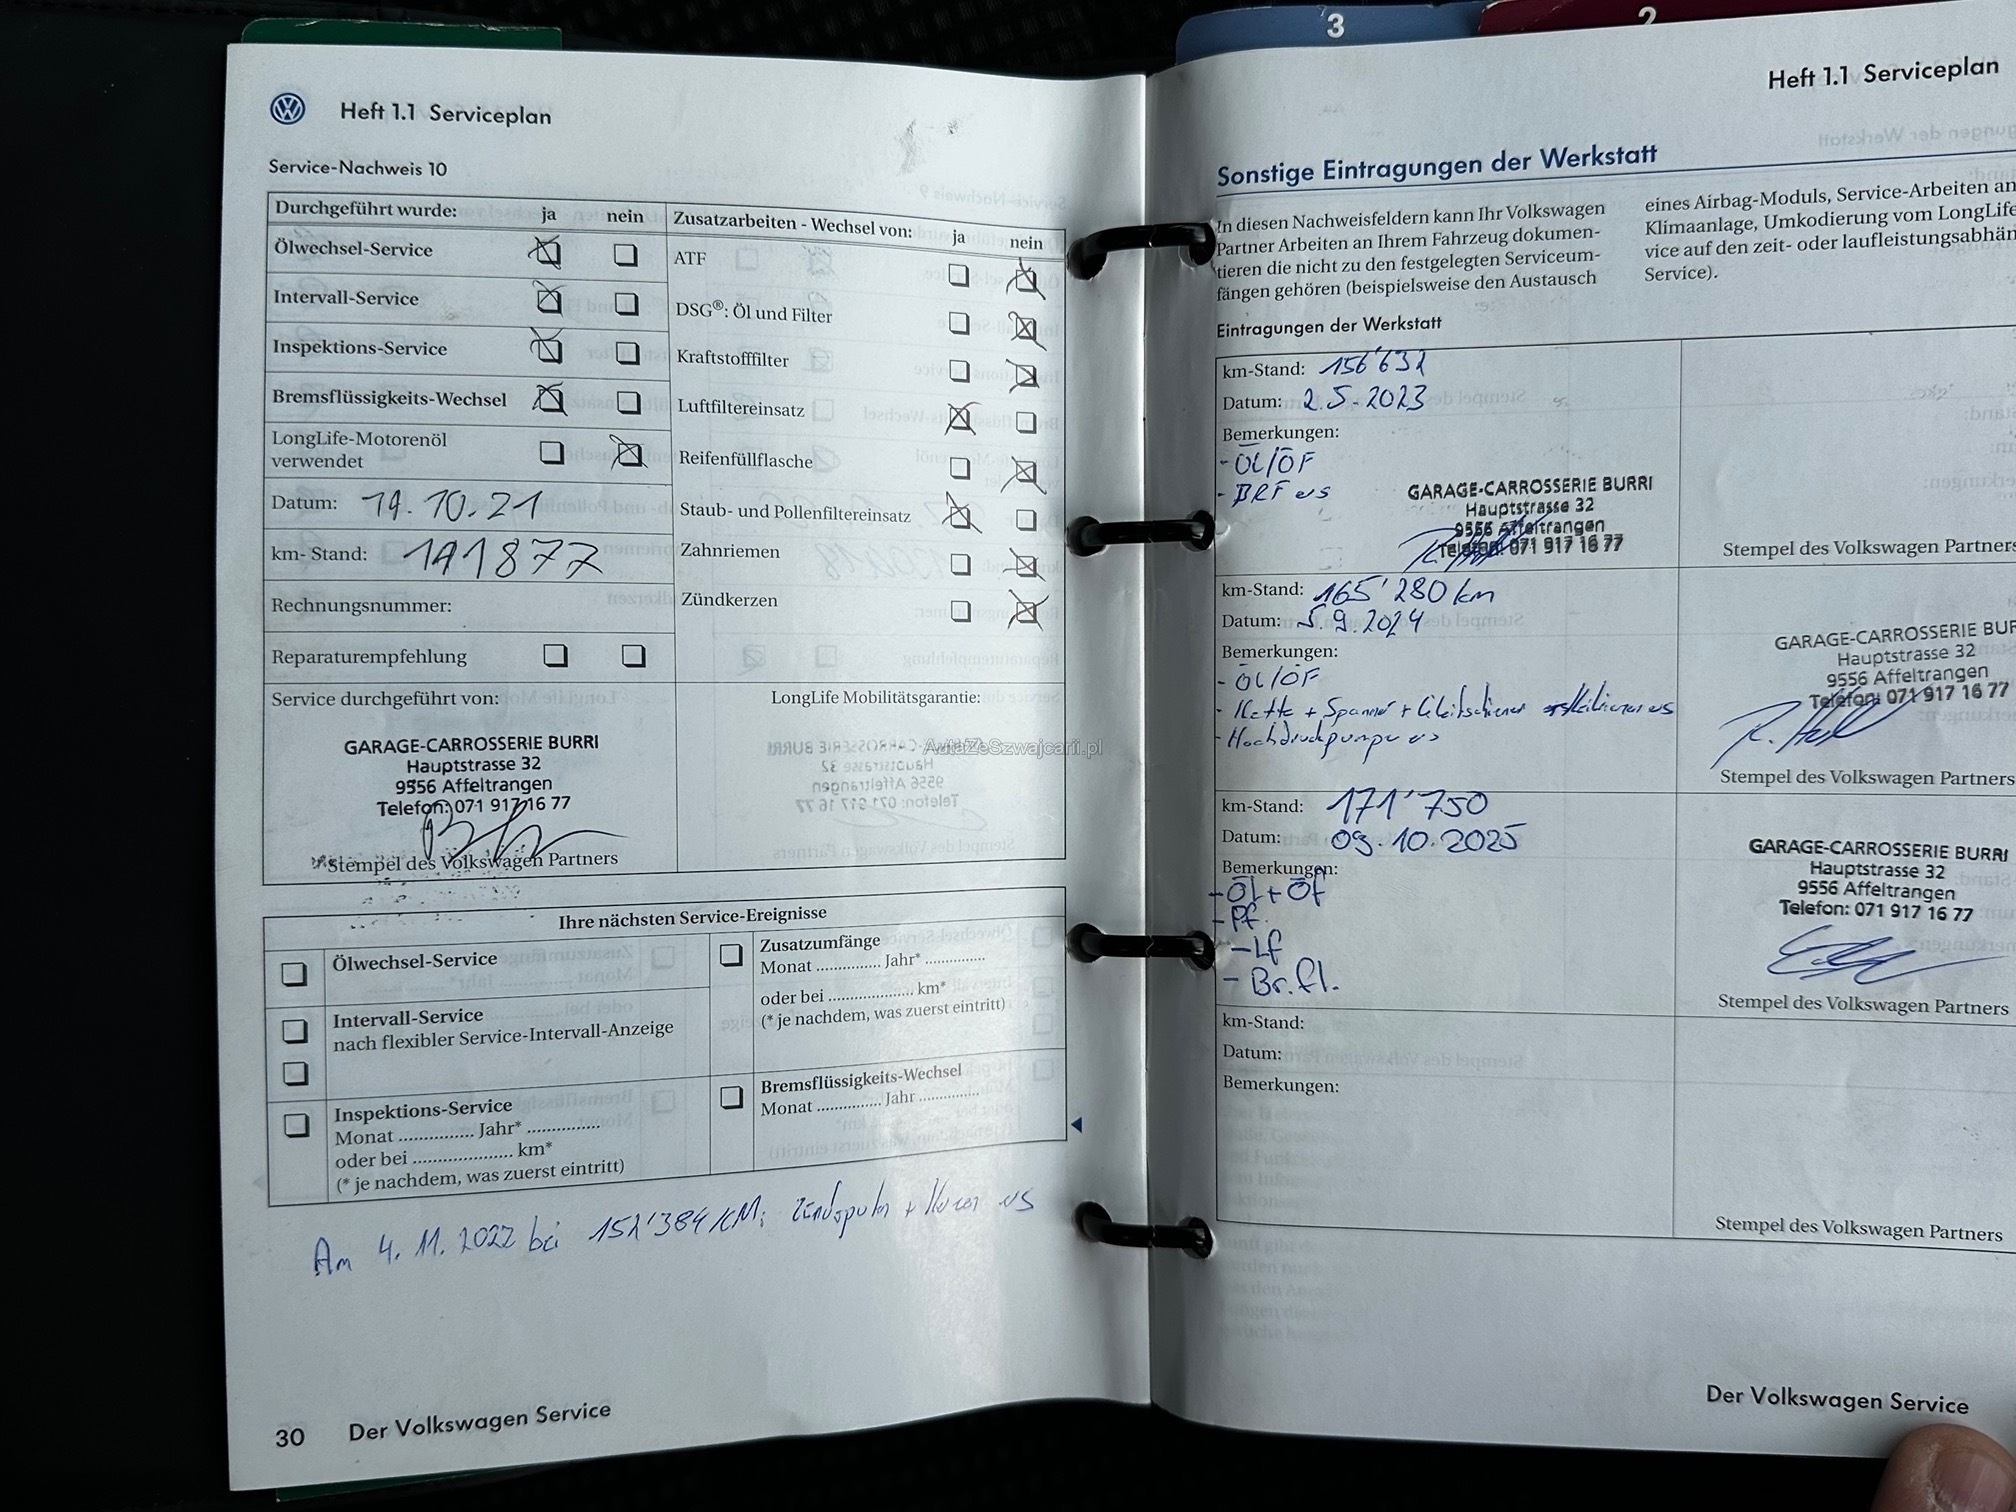 3
2
Heft 1.1 Serviceplan
Service-Nachweis 10
Durchgeführt wurde: ja nein
Ölwechsel-Service
Intervall-Service
Inspektions-Service
Bremsflüssigkeits-Wechsel
LongLife-Motorenöl
verwendet
Datum: 14.10.21
km-Stand: 141877
Rechnungsnummer:
Reparaturempfehlung
Zusatzarbeiten - Wechsel von: ja nein
ATF
DSG®: Öl und Filter
Kraftstofffilter
Luftfiltereinsatz
Reifenfüllflasche
Staub- und Pollenfiltereinsatz
Zahnriemen
Zündkerzen
Service durchgeführt von:
GARAGE-CARROSSERIE BURRI
Hauptstrasse 32
9556 Affeltrangen
Telefon: 071 917 16 77
Stempel des Volkswagen Partners
LongLife Mobilitätsgarantie:
AutaZeSzwajcarii.pl
Ihre nächsten Service-Ereignisse
Ölwechsel-Service
Intervall-Service
nach flexibler Service-Intervall-Anzeige
Inspektions-Service
Monat ............... Jahr* ...............
oder bei .................... km*
(* je nachdem, was zuerst eintritt)
Zusatzumfänge
Monat ............... Jahr* ..............
oder bei .................... km*
(* je nachdem, was zuerst eintritt)
Bremsflüssigkeits-Wechsel
Monat ............... Jahr ..............
Am 4.11.2022 bei 152'384 KM: + es
30 Der Volkswagen Service
Heft 1.1 Serviceplan
Sonstige Eintragungen der Werkstatt
In diesen Nachweisfeldern kann Ihr Volkswagen
Partner Arbeiten an Ihrem Fahrzeug dokumen-
tieren die nicht zu den festgelegten Serviceum-
fängen gehören (beispielsweise den Austausch
eines Airbag-Moduls, Service-Arbeiten an
Klimaanlage, Umkodierung vom LongLife
vice auf den zeit- oder laufleistungsabhän
Service).
Eintragungen der Werkstatt
km-Stand: 156'632
Datum: 2.5.2023
Bemerkungen:
- ÖL/ÖF
- BRF es
GARAGE-CARROSSERIE BURRI
Hauptstrasse 32
9556 Affeltrangen
Telefon: 071 917 16 77
Stempel des Volkswagen Partners
km-Stand: 165'280 km
Datum: 5.9.2024
Bemerkungen:
- ÖL/ÖF
- Kette + Spanner + Gleitschienen es
- Hochdruckpumpe es
GARAGE-CARROSSERIE BUR
Hauptstrasse 32
9556 Affeltrangen
Telefon: 071 917 16 77
Stempel des Volkswagen Partners
km-Stand: 171'750
Datum: 09.10.2025
Bemerkungen:
- Öl + Öf
- Pf.
- Lf
- Br.fl.
GARAGE-CARROSSERIE BURRI
Hauptstrasse 32
9556 Affeltrangen
Telefon: 071 917 16 77
Stempel des Volkswagen Partners
km-Stand:
Datum:
Bemerkungen:
Stempel des Volkswagen Partners
Der Volkswagen Service